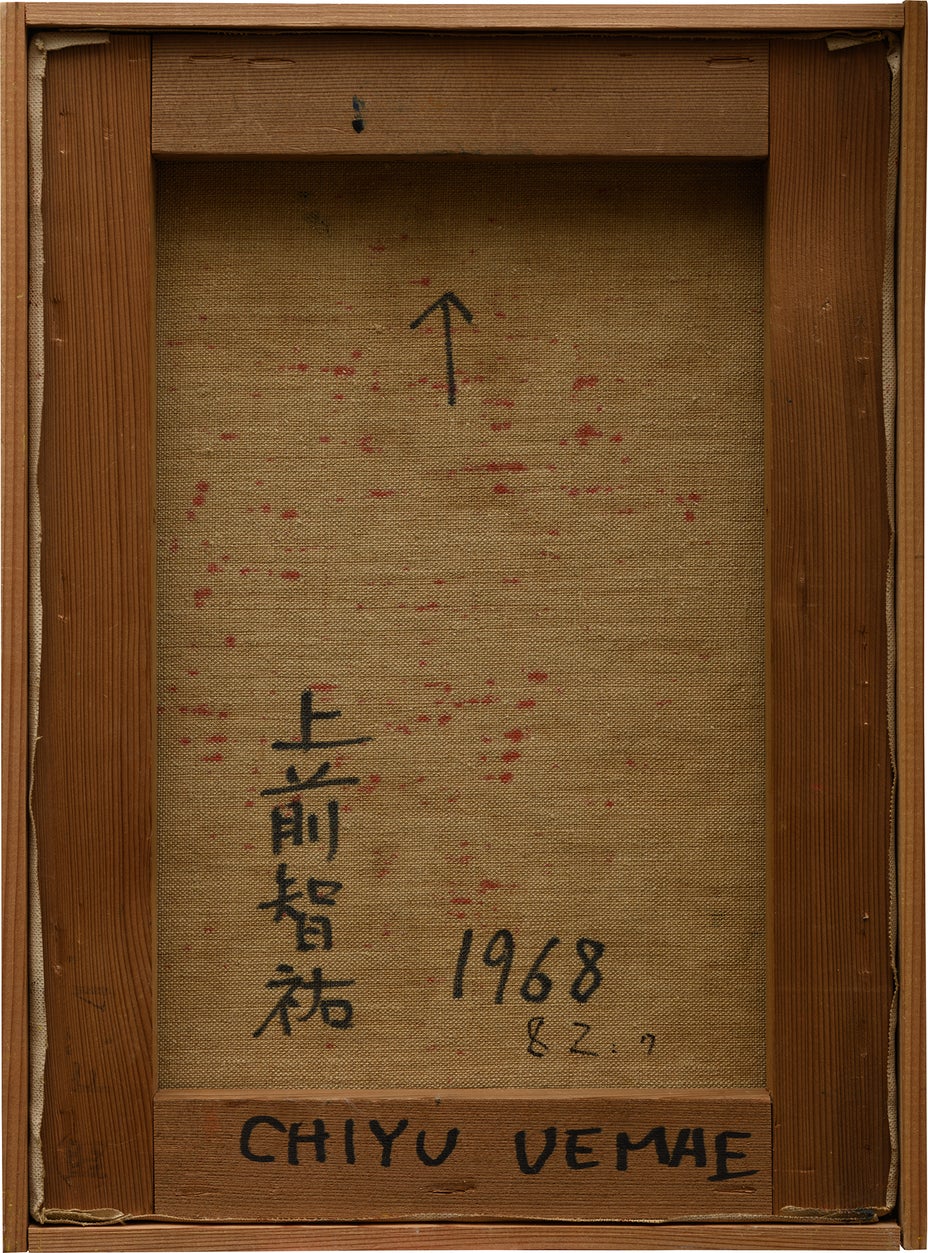 上前智祐
1968
82.7
CHIYU UEMAE